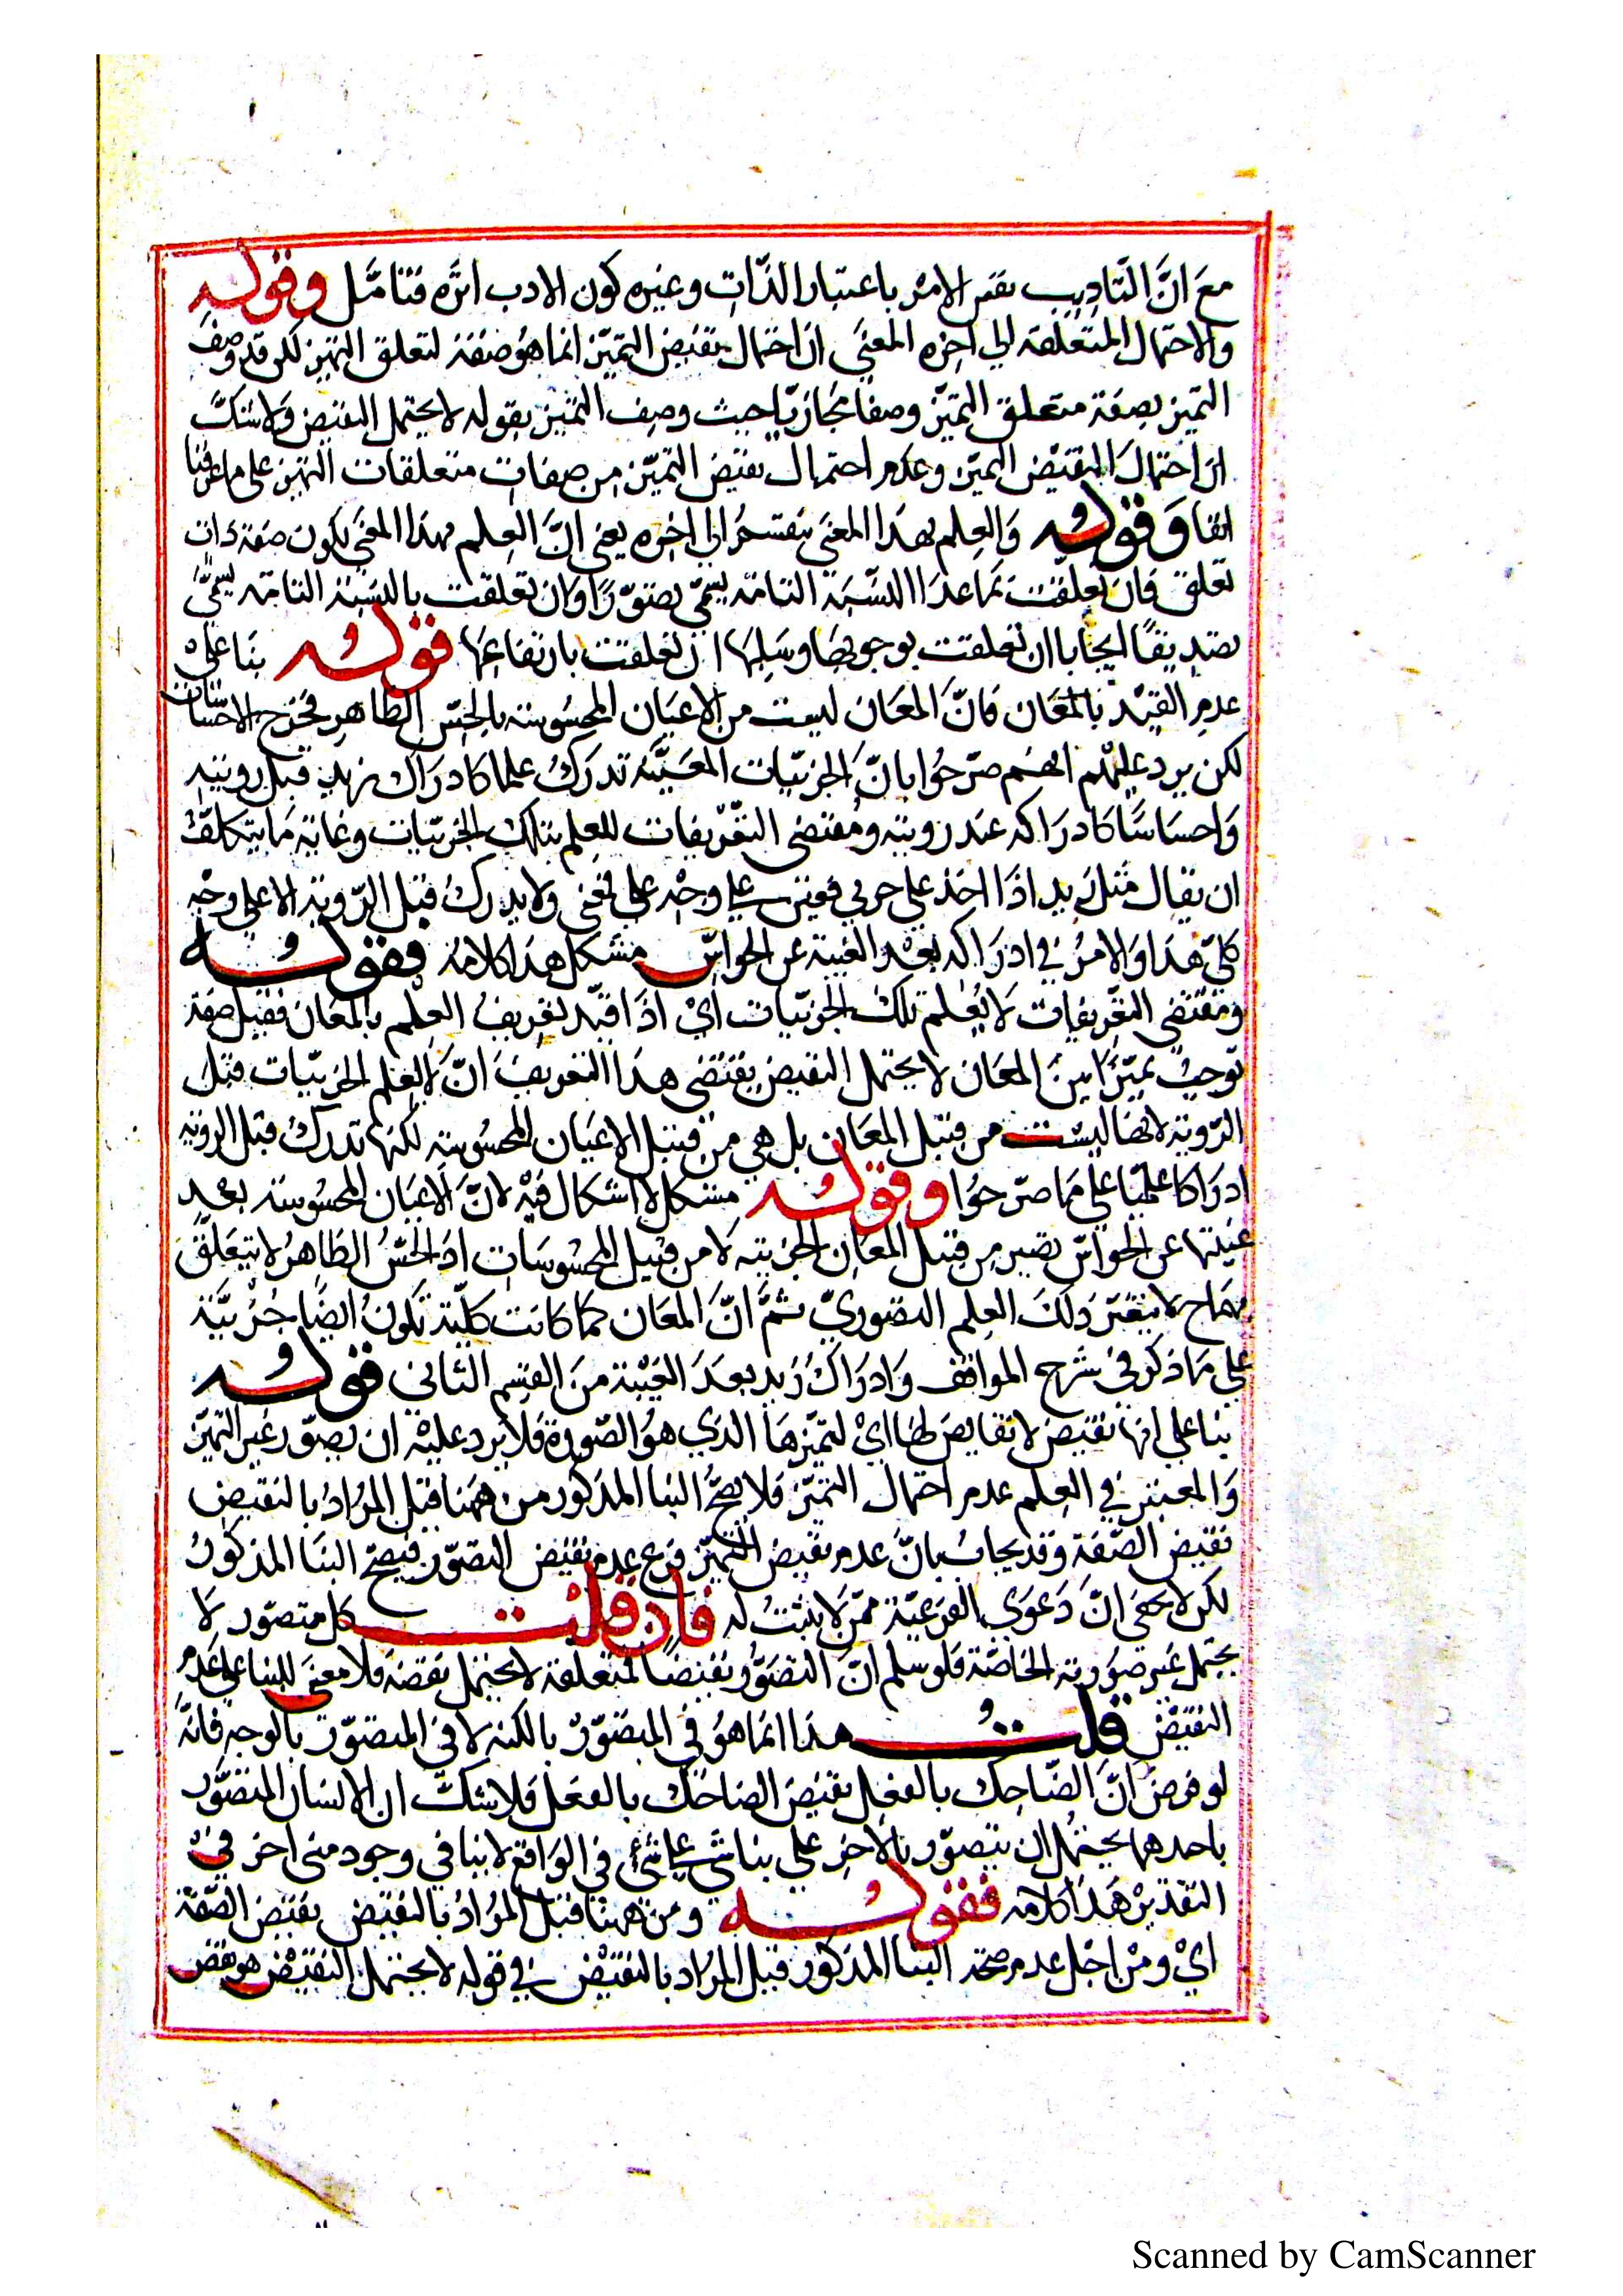 مع انّ التّاديب نفس الامر باعتبار الذّات وغيره كون الادب اثره فتامّل وقوله
والاحتمال المتعلقة الي اخره المعني ان احتمال نقيض التميّز انما هو صفة لتعلق التميز لكن قد وصف
التميز بصفة متعلق التميّز وصفا مجازيّا حيث وصف التميز بقوله لا يحتمل النقيض ولا شكّ
ان احتمال النقيض التميّز وعدم احتمال نقيض التميّز من صفات متعلقات التميز علي ما عرفنا
انفا وقوله والعلم بهذا المعني ينقسم الي اخره يعني انّ العلم بهذا المعني يكون صفة ذات
تعلق فان تعلّقت بما عدا النسبة التامة يسمّي تصوّرا وان تعلقت بالنسبة التامة يسمّي
تصديقًا ايجابا ان تعلقت بوجوبها وسلبها ان تعلقت بارتفاعها قوله بنا علي
عدم القيد بالمعان فانّ المعان ليست من الاعيان المحسوسة بالحسّ الظاهر فخرج الاحساسات
لكن يرد عليهم انهم صرّحوا بانّ الجزئيّات المعيّنة تدرك علما كادراك زيد قبل رويته
واحساسًا كادراكه عند رويته ومقتضي التعّريفات للعلم بتلك الجزئيّات وغاية ما يتكلّف
ان يقال مثل زيد اذا اخذ علي ... علي وجه ... ولا يدرك قبل الرّوية الا علي وجه
كلّي هذا والامر في ادراكه بعد الغيبة عن الحواسّ مشكل هذا كلامه فقوله
ومقتضي التعّريفات لا يعلم تلك الجزئيّات اي اذا قيّد تعريف العلم بالمعان فقيل صفة
توجب تميّزا بين المعان لا يحتمل النقيض يقتضي هذا التعريف انّ لا يعلم الجزئيّات قبل
الرّوية لانها ليست من قبيل المعان بل هي من قبيل الاعيان المحسوسة لكنها تدرك قبل الروية
ادراكا علميّا علي ما صرّحوا وقوله مشكل لا اشكال فيه لانّ الاعيان المحسوسة بعد
غيبتها عن الحواسّ تصير من قبيل المعان الجزئية لا من قبيل المحسوسات اذ الحسّ الظاهر لا يتعلّق
بها ح لا ... ذلك العلم التصوريّ ثمّ انّ المعان كما كانت كليّة تكون ايضًا جزئيّة
علي ما ذكر في شرح المواقف وادراك زيد بعد الغيبة من القسم الثاني قوله
بنا علي انها نقيض لا نقايض لها اي لتميّزها الذي هو الصّورة فلا يرد عليه ان يصوّر غير التميّز
والمعتبر في العلم عدم احتمال التميّز فلا يصحّ البنا المذكور من ههنا قيل المراد بالنقيض
نقيض الصّفة وقد يجاب بانّ عدم نقيض التميّز فرع عدم نقيض التصوّر فيصحّ البنا المذكور
لكن لا يخفي انّ دعوي الفرعيّة ممّن لا يثبت له فان قلت كل متصوّر لا
يحتمل غير صورته الخاصّة فلو سلم انّ التصوّر نقيضًا لمتعلقة لا يحتمل نقضه فلا معني للبنا علي عدم
النقيض قلت هذا انما هو في المتصوّر بالكنه لا في المتصوّر بالوجه فانّه
لو فرض انّ الضّاحك بالفعل نقيض الضاحك بالفعل فلا شكّ ان الانسان المتصوّر
باحدهما يحتمل ان يتصوّر بالاخر علي بنا شي علي شيء في الواقع لا ينافي وجود مني اخر في
التقدير هذا كلامه فقوله ومن ههنا قيل المراد بالنقيض نقيض الصّفة
اي ومن اجل عدم صحة البنا المذكور قيل المراد بالنقيض في قوله لا يحتمل النقيض هو نقيض
Scanned by CamScanner